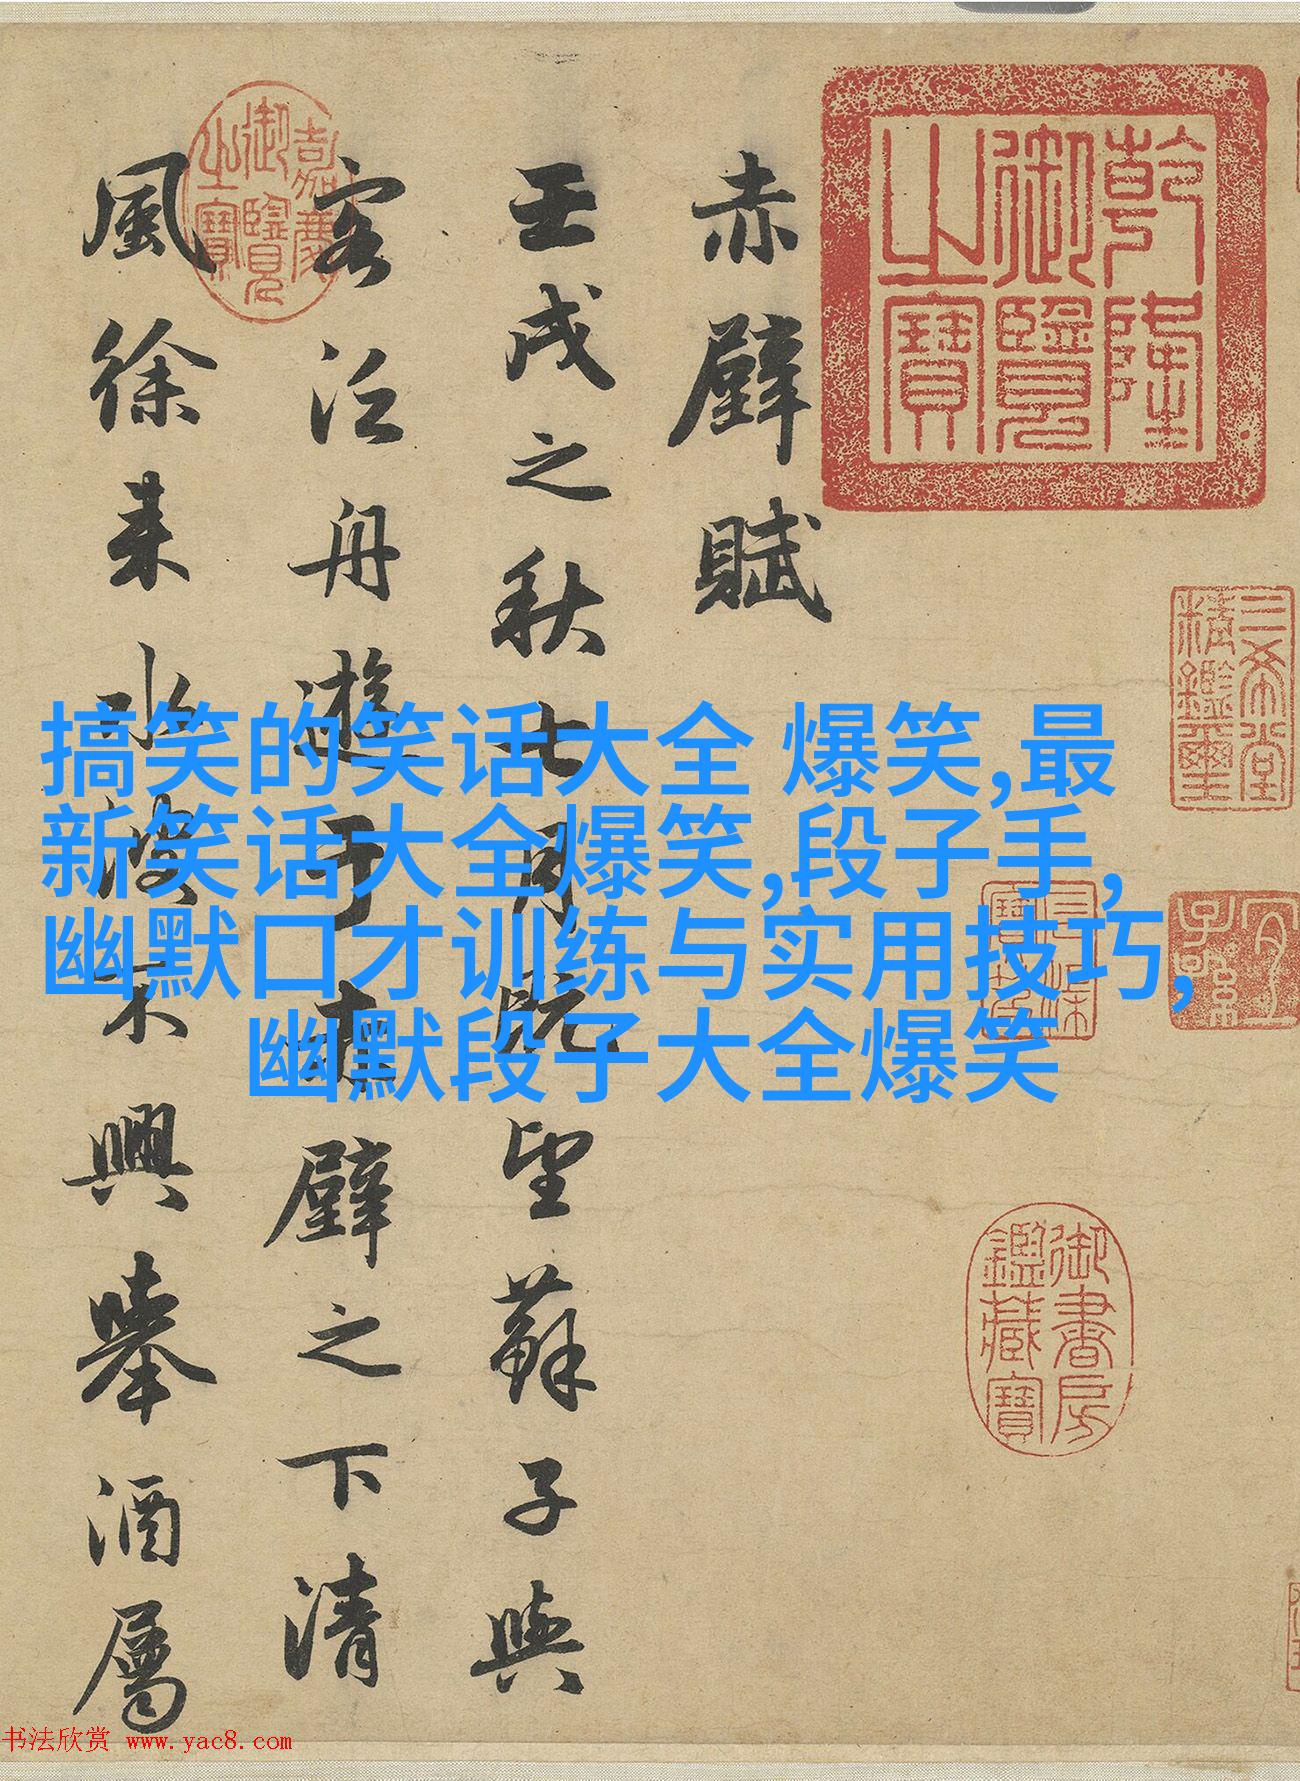 赤壁賦
壬戌之秋七月既望蘇子與
客泛舟遊于赤壁之下清
風徐来水波不興舉酒屬
乾隆御覽之寶
嘉慶御覽之寶
三希堂精鑑璽
宜子孫
御書房鑑藏寶
搞笑的笑话大全 爆笑,最
新笑话大全爆笑,段子手,
幽默口才训练与实用技巧,
幽默段子大全爆笑
书法欣赏 www.yac8.com